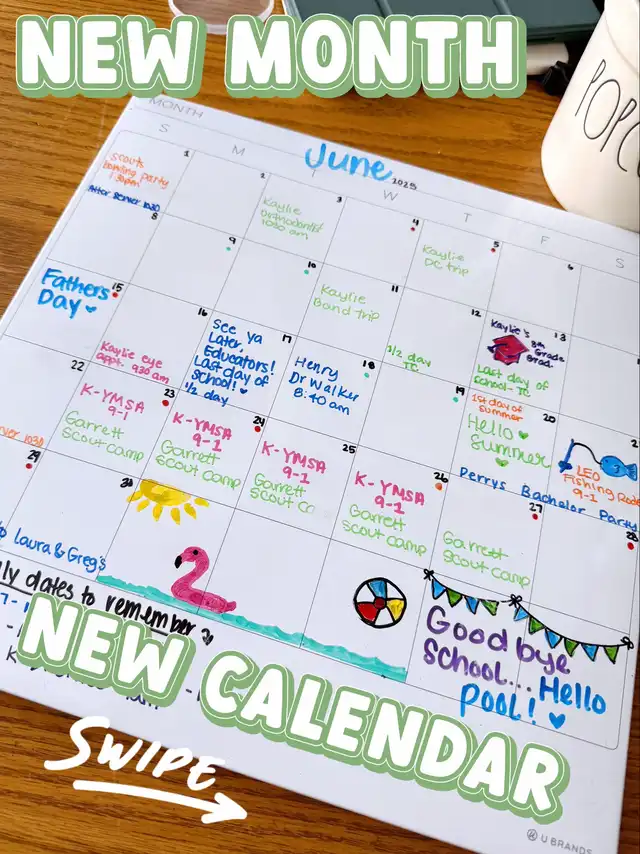 NEW MONTH
POPC
MONTH
S
M
T
W
T
F
S
June
2025
1
scouts
bowling party
1:30pm!
2
3
Kaylie
orthodontist
1050 am
4
5
Kaylie
DC trip
6
8
9
10
11
Kaylie
Band trip
12
1/2 day
TC
13
Kaylie's
8th Grade
Grad.
Last day of
school - TC
15
Fathers
Day
16
Kaylie eye
appt. 930 am
17
See ya
Later,
Educators!
Last day of
school!
1/2 day
18
Henry
Dr Walker
8:40 am
19
20
1st day of
summer
Hello
Summer
2
LEO
Fishing
9-1
Perrys Bachelor Party
22
23
K-YMSA
9-1
Garrett
Scout camp
24
K-YMSA
9-1
Garrett
Scout camp
25
K-YMSA
9-1
Garrett
Scout
26
K-YMSA
9-1
Garrett
Scout camp
27
Garrett
Scout camp
28
29
30
Laura & Greg's
dates to remember
Goodbye
School... Hello
Pool!
NEW CALENDAR
SWIPE
U BRANDS